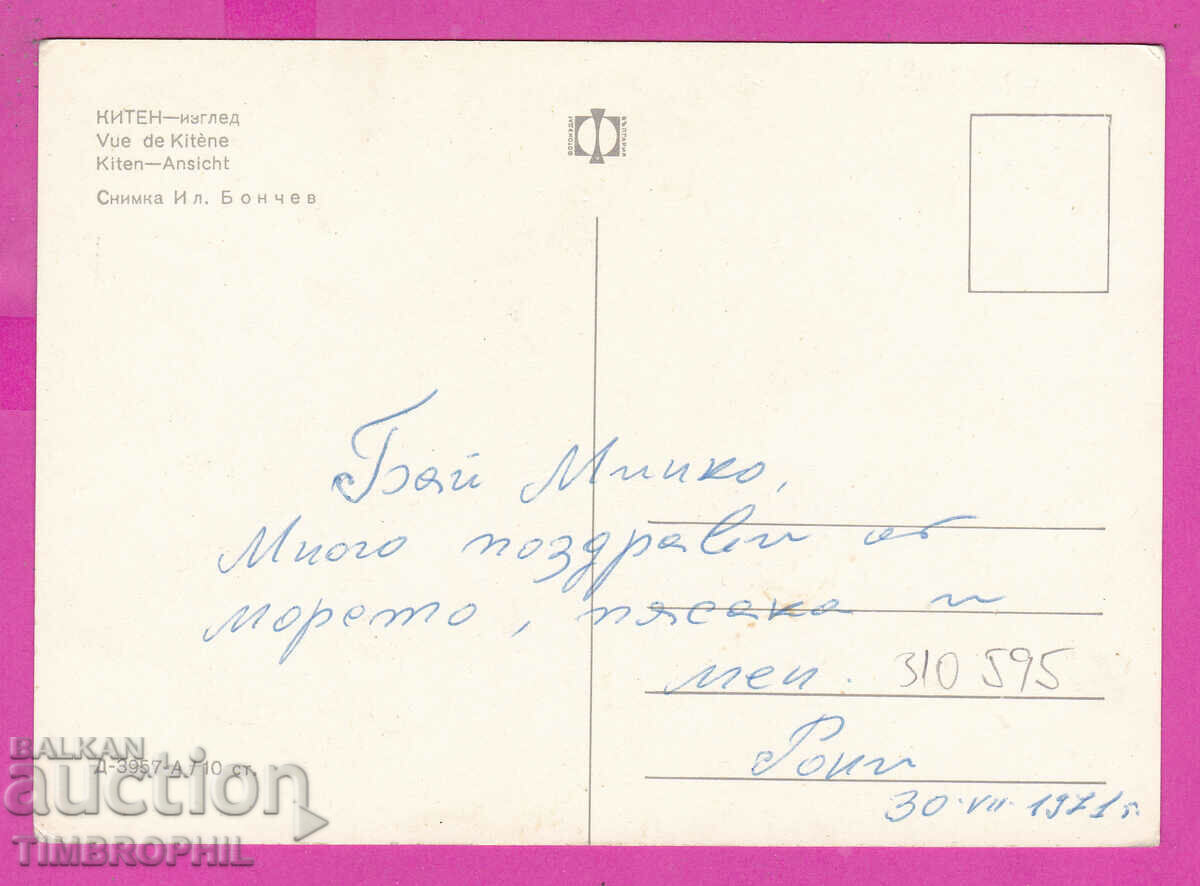 КИТЕН—изглед
Vue de Kitène
Kiten—Ansicht
Снимка Ил. Бончев
ФОТОИЗДАТ
БЪЛГАРИЯ
Бай Минко,
Много поздрави от
морето, пясака и
мен.
310 595
Рони
30·VII·1971г.
Д-3957-А/10 ст.
BALKAN
auction
TIMBROPHIL